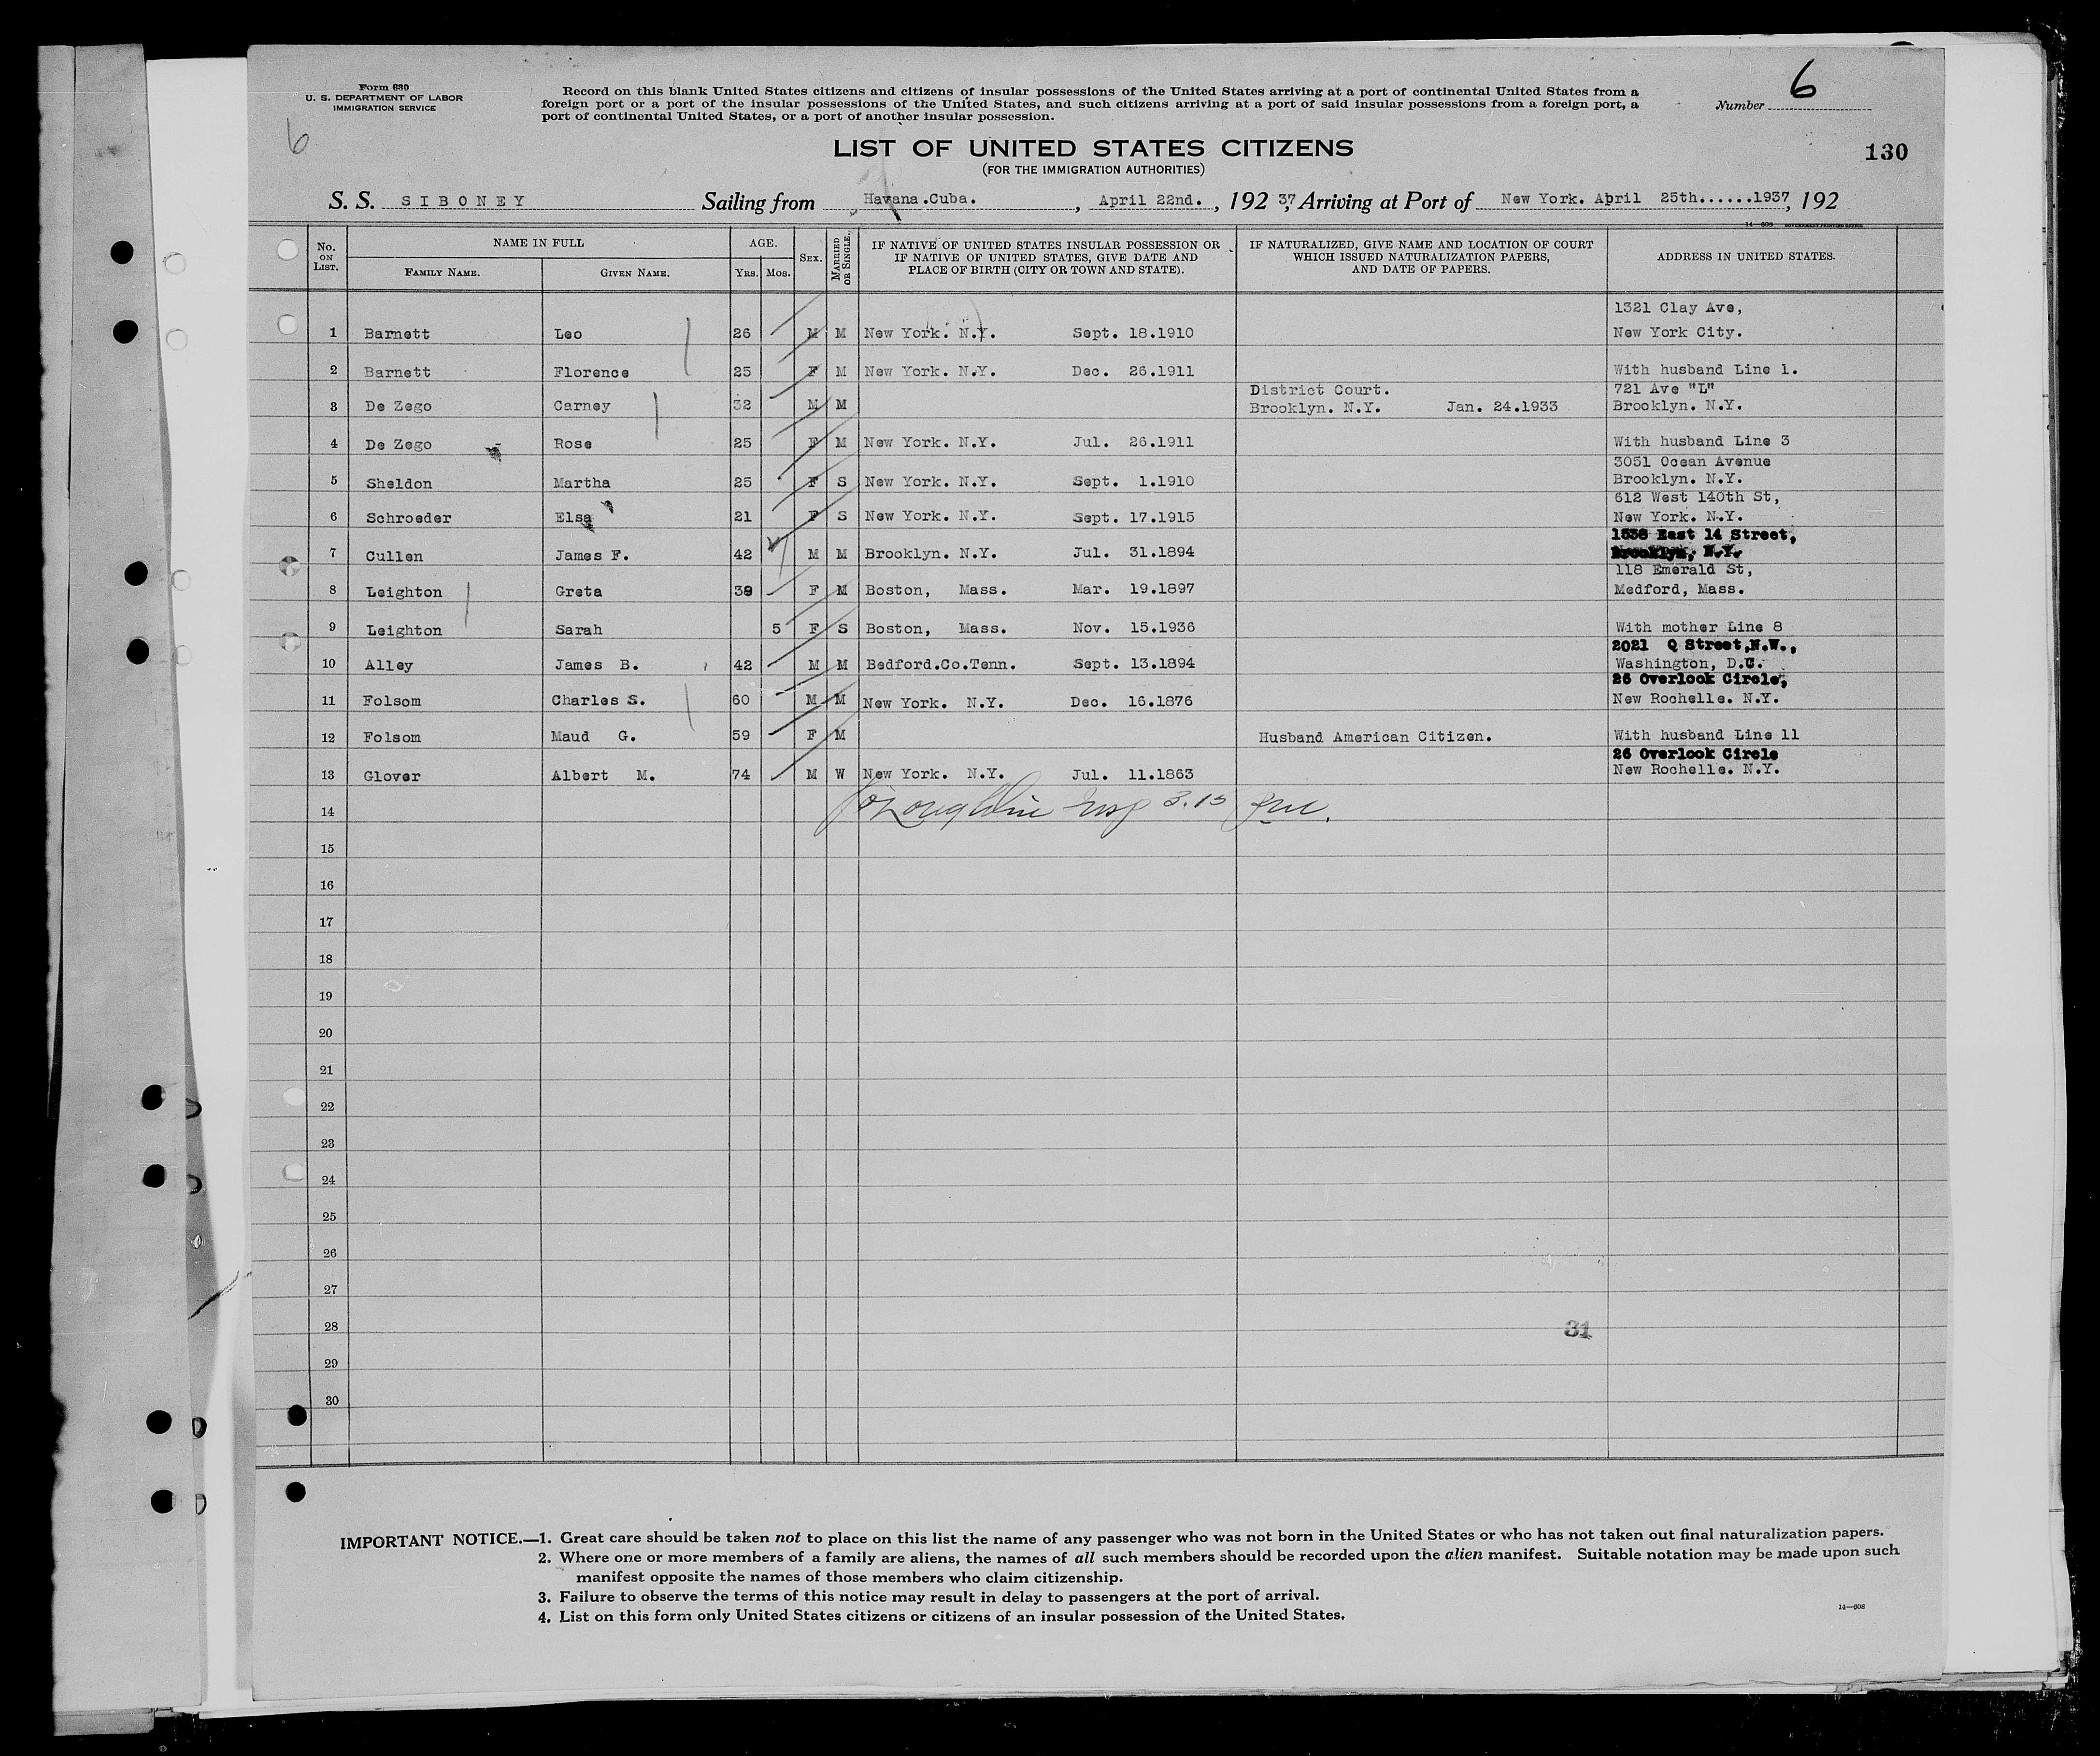 Form 630
U. S. DEPARTMENT OF LABOR
IMMIGRATION SERVICE
6
Record on this blank United States citizens and citizens of insular possessions of the United States arriving at a port of continental United States from a
foreign port or a port of the insular possessions of the United States, and such citizens arriving at a port of said insular possessions from a foreign port, a
port of continental United States, or a port of another insular possession.
Number 6
LIST OF UNITED STATES CITIZENS
(FOR THE IMMIGRATION AUTHORITIES)
130
S. S. SIBONEY Sailing from Havana.Cuba. , April 22nd. , 192 37, Arriving at Port of New York. April 25th......1937, 192
14—608 GOVERNMENT PRINTING OFFICE
No. ON LIST. NAME IN FULL AGE. SEX. MARRIED OR SINGLE. IF NATIVE OF UNITED STATES INSULAR POSSESSION OR IF NATIVE OF UNITED STATES, GIVE DATE AND PLACE OF BIRTH (CITY OR TOWN AND STATE). IF NATURALIZED, GIVE NAME AND LOCATION OF COURT WHICH ISSUED NATURALIZATION PAPERS, AND DATE OF PAPERS. ADDRESS IN UNITED STATES.
FAMILY NAME. GIVEN NAME. YRS. MOS.
1321 Clay Ave,
1 Barnett Leo 26 M M New York. N.Y. Sept. 18.1910 New York City.
2 Barnett Florence 25 F M New York. N.Y. Dec. 26.1911 With husband Line 1.
District Court. 721 Ave "L"
3 De Zego Carney 32 M M Brooklyn. N.Y. Jan. 24.1933 Brooklyn. N.Y.
4 De Zego Rose 25 F M New York. N.Y. Jul. 26.1911 With husband Line 3
3051 Ocean Avenue
5 Sheldon Martha 25 F S New York. N.Y. Sept. 1.1910 Brooklyn. N.Y.
612 West 140th St,
6 Schroeder Elsa 21 F S New York. N.Y. Sept. 17.1915 New York. N.Y.
East 14 Street,
7 Cullen James F. 42 M M Brooklyn. N.Y. Jul. 31.1894 Brooklyn, N.Y.
118 Emerald St,
8 Leighton Greta 39 F M Boston, Mass. Mar. 19.1897 Medford, Mass.
9 Leighton Sarah 5 F S Boston, Mass. Nov. 15.1936 With mother Line 8
2021 Q Street,N.W.,
10 Alley James B. 42 M M Bedford.Co.Tenn. Sept. 13.1894 Washington, D.C.
26 Overlook Circle,
11 Folsom Charles S. 60 M M New York. N.Y. Dec. 16.1876 New Rochelle. N.Y.
12 Folsom Maud G. 59 F M Husband American Citizen. With husband Line 11
26 Overlook Circle
13 Glover Albert M. 74 M W New York. N.Y. Jul. 11.1863 New Rochelle. N.Y.
14 Insp 3.15
15
16
17
18
19
20
21
22
23
24
25
26
27
28 31
29
30
IMPORTANT NOTICE.—1. Great care should be taken not to place on this list the name of any passenger who was not born in the United States or who has not taken out final naturalization papers.
2. Where one or more members of a family are aliens, the names of all such members should be recorded upon the alien manifest. Suitable notation may be made upon such
manifest opposite the names of those members who claim citizenship.
3. Failure to observe the terms of this notice may result in delay to passengers at the port of arrival.
4. List on this form only United States citizens or citizens of an insular possession of the United States.
14—608